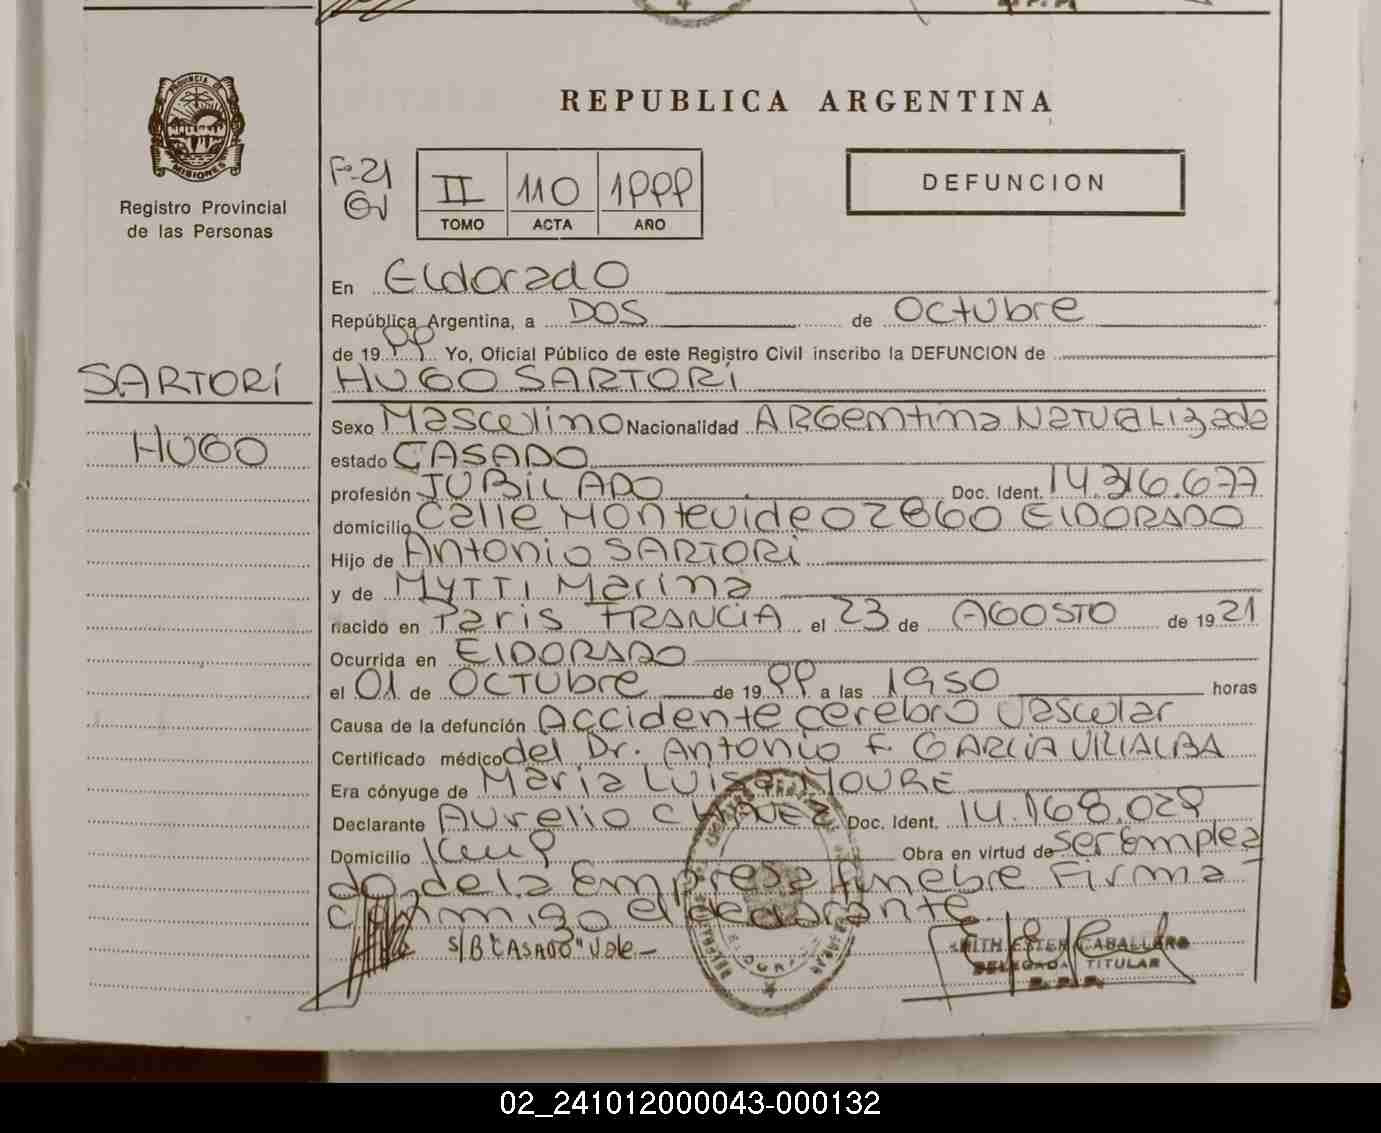 PROVINCIA D
MISIONES
Registro Provincial
de las Personas
REPUBLICA ARGENTINA
F-21
II 110 1999
TOMO ACTA AÑO
DEFUNCION
En Eldorado
República Argentina, a DOS de Octubre
de 1999 Yo, Oficial Público de este Registro Civil inscribo la DEFUNCION de
SARTORI
HUGO SARTORI
HUGO
Sexo Masculino Nacionalidad ARGentina NATURALizada
estado CASADO
profesión JUBILADO Doc. Ident. 14.316.677
domicilio Calle Montevideo 2860 ElDORADO
Hijo de Antonio SARTORI
y de MYTTI Marina
nacido en Paris FRANCIA el 23 de AGOSTO de 1921
Ocurrida en ElDORADO
el 01 de OCTUbre de 1999 a las 1950 horas
Causa de la defunción Accidente cerebro vascular
Certificado médico del Dr. Antonio F. GARCIA VILLALBA
Era cónyuge de Maria Luisa MOURE
Declarante Aurelio CHAVEZ Doc. Ident. 14.168.029
Domicilio Km 9 Obra en virtud de ser Emplea
do de la Empresa funebre Firma
conmigo el declarante
S/B "CASADO" Vale-
EDITH ESTER CABALLERO
DELEGADA TITULAR
R. P. P.
02_241012000043-000132